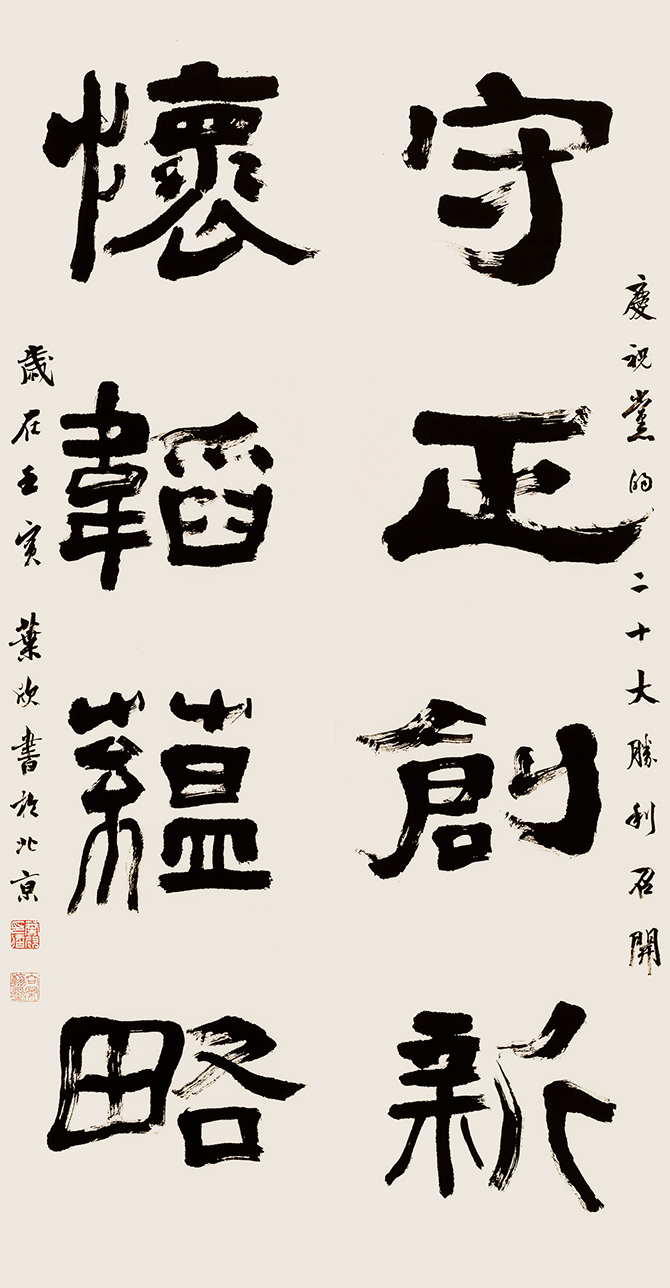 慶祝黨的二十大勝利召開
守正創新
懷韜蘊略
歲在壬寅 葉欣書於北京